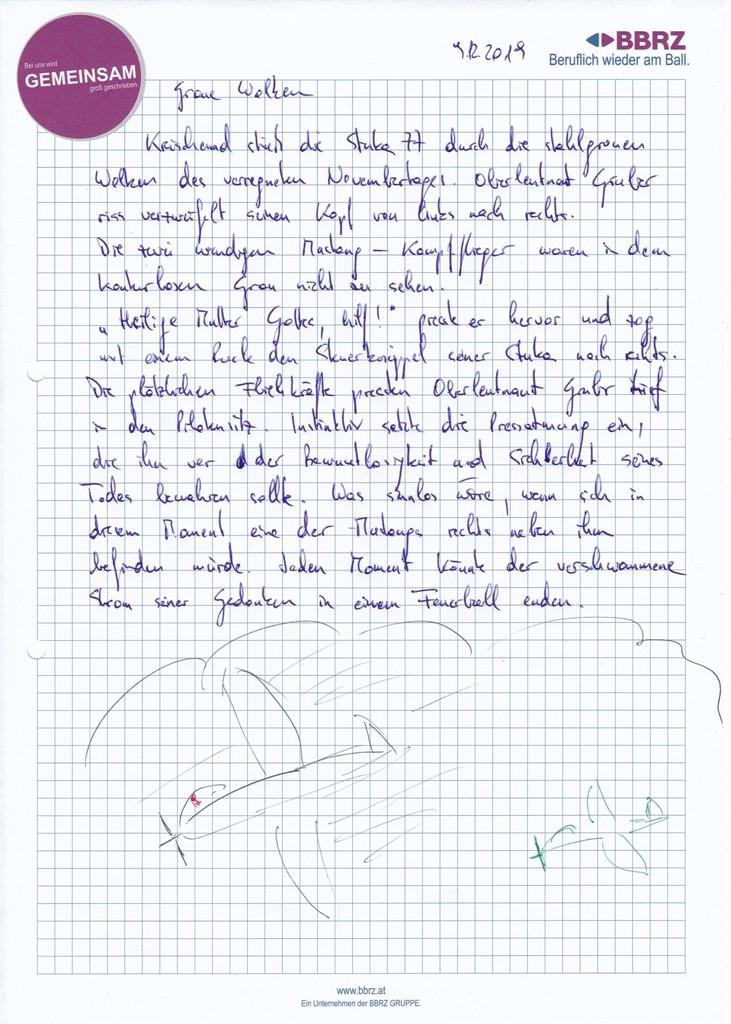 Bei uns wird
GEMEINSAM
groß geschrieben.
9.12.2019
BBRZ
Beruflich wieder am Ball.
Graue Wolken
Kreischend stieß die Stuka 77 durch die stahlgrauen
Wolken des verregneten Novembertages. Oberleutnant Gruber
riss verzweifelt seinen Kopf von links nach rechts.
Die zwei wendigen Mustang – Kampfflieger waren in dem
konturlosen Grau nicht zu sehen.
„Heilige Mutter Gottes, hilf!" presste er hervor und zog
mit einem Ruck den Steuerknüppel seiner Stuka nach rechts.
Die plötzlichen Fliehkräfte pressten Oberleutnant Gruber tief
in den Pilotensitz. Instinktiv setzte die Pressatmung ein,
die ihn vor der Bewusstlosigkeit und Sicherheit seines
Todes bewahren sollte. Was sinnlos wäre, wenn sich in
diesem Moment eine der Mustangs rechts neben ihm
befinden würde. Jeden Moment könnte der verschwommene
Strom seiner Gedanken in einem Feuerball enden.
www.bbrz.at
Ein Unternehmen der BBRZ GRUPPE.